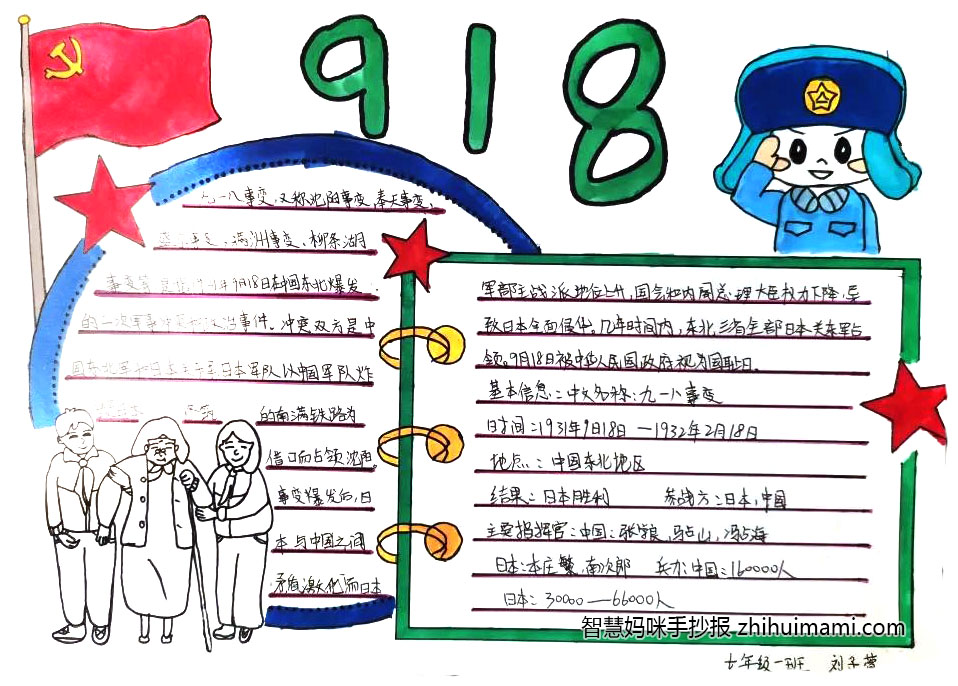 918
九一八事变,又称沈阳事变、奉天事变、
事变、满洲事变、柳条湖
事变等 9月18日在中国东北爆发
的一次军事冲突和政治事件。冲突双方是中
国东北军和日本 日本军队以中国军队炸
的南满铁路为
借口而占领沈阳。
事变爆发后,日
本与中国之间
矛盾激化,而日本
军部主战派地位上升,国会和内阁总理大臣权力下降,导
致日本全面侵华。几年时间内,东北三省全部日本关东军占
领。9月18日被中华人民国政府视为国耻日。
基本信息:中文名称:九一八事变
时间:1931年9月18日—1932年2月18日
地点:中国东北地区
结果:日本胜利 参战方:日本,中国
主要指挥官:中国:张学良,马占山,冯占海
日本:本庄繁,南次郎 兵力:中国:160000人
日本:30000—66000人
智慧妈咪手抄报 zhihuimami.com
七年级一班 刘子